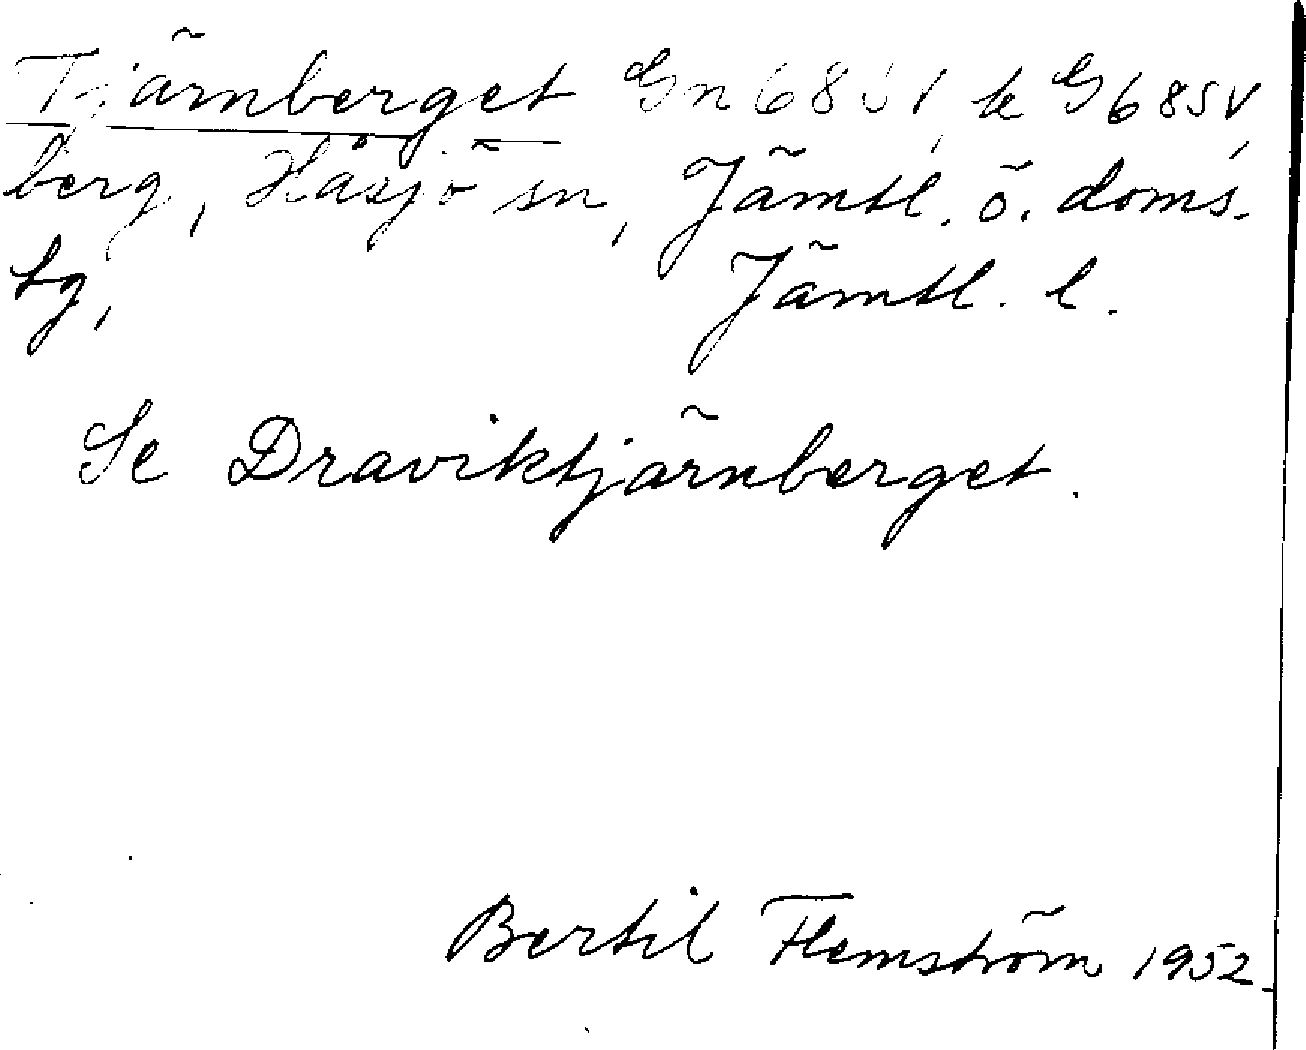 Tjärnberget Gn 68 S1, k G 68 SV,
berg, Håsjö sn, Jämtl. ö. doms.
tg, Jämtl. l.
Se Draviktjärnberget.
Bertil Flemström 1952.